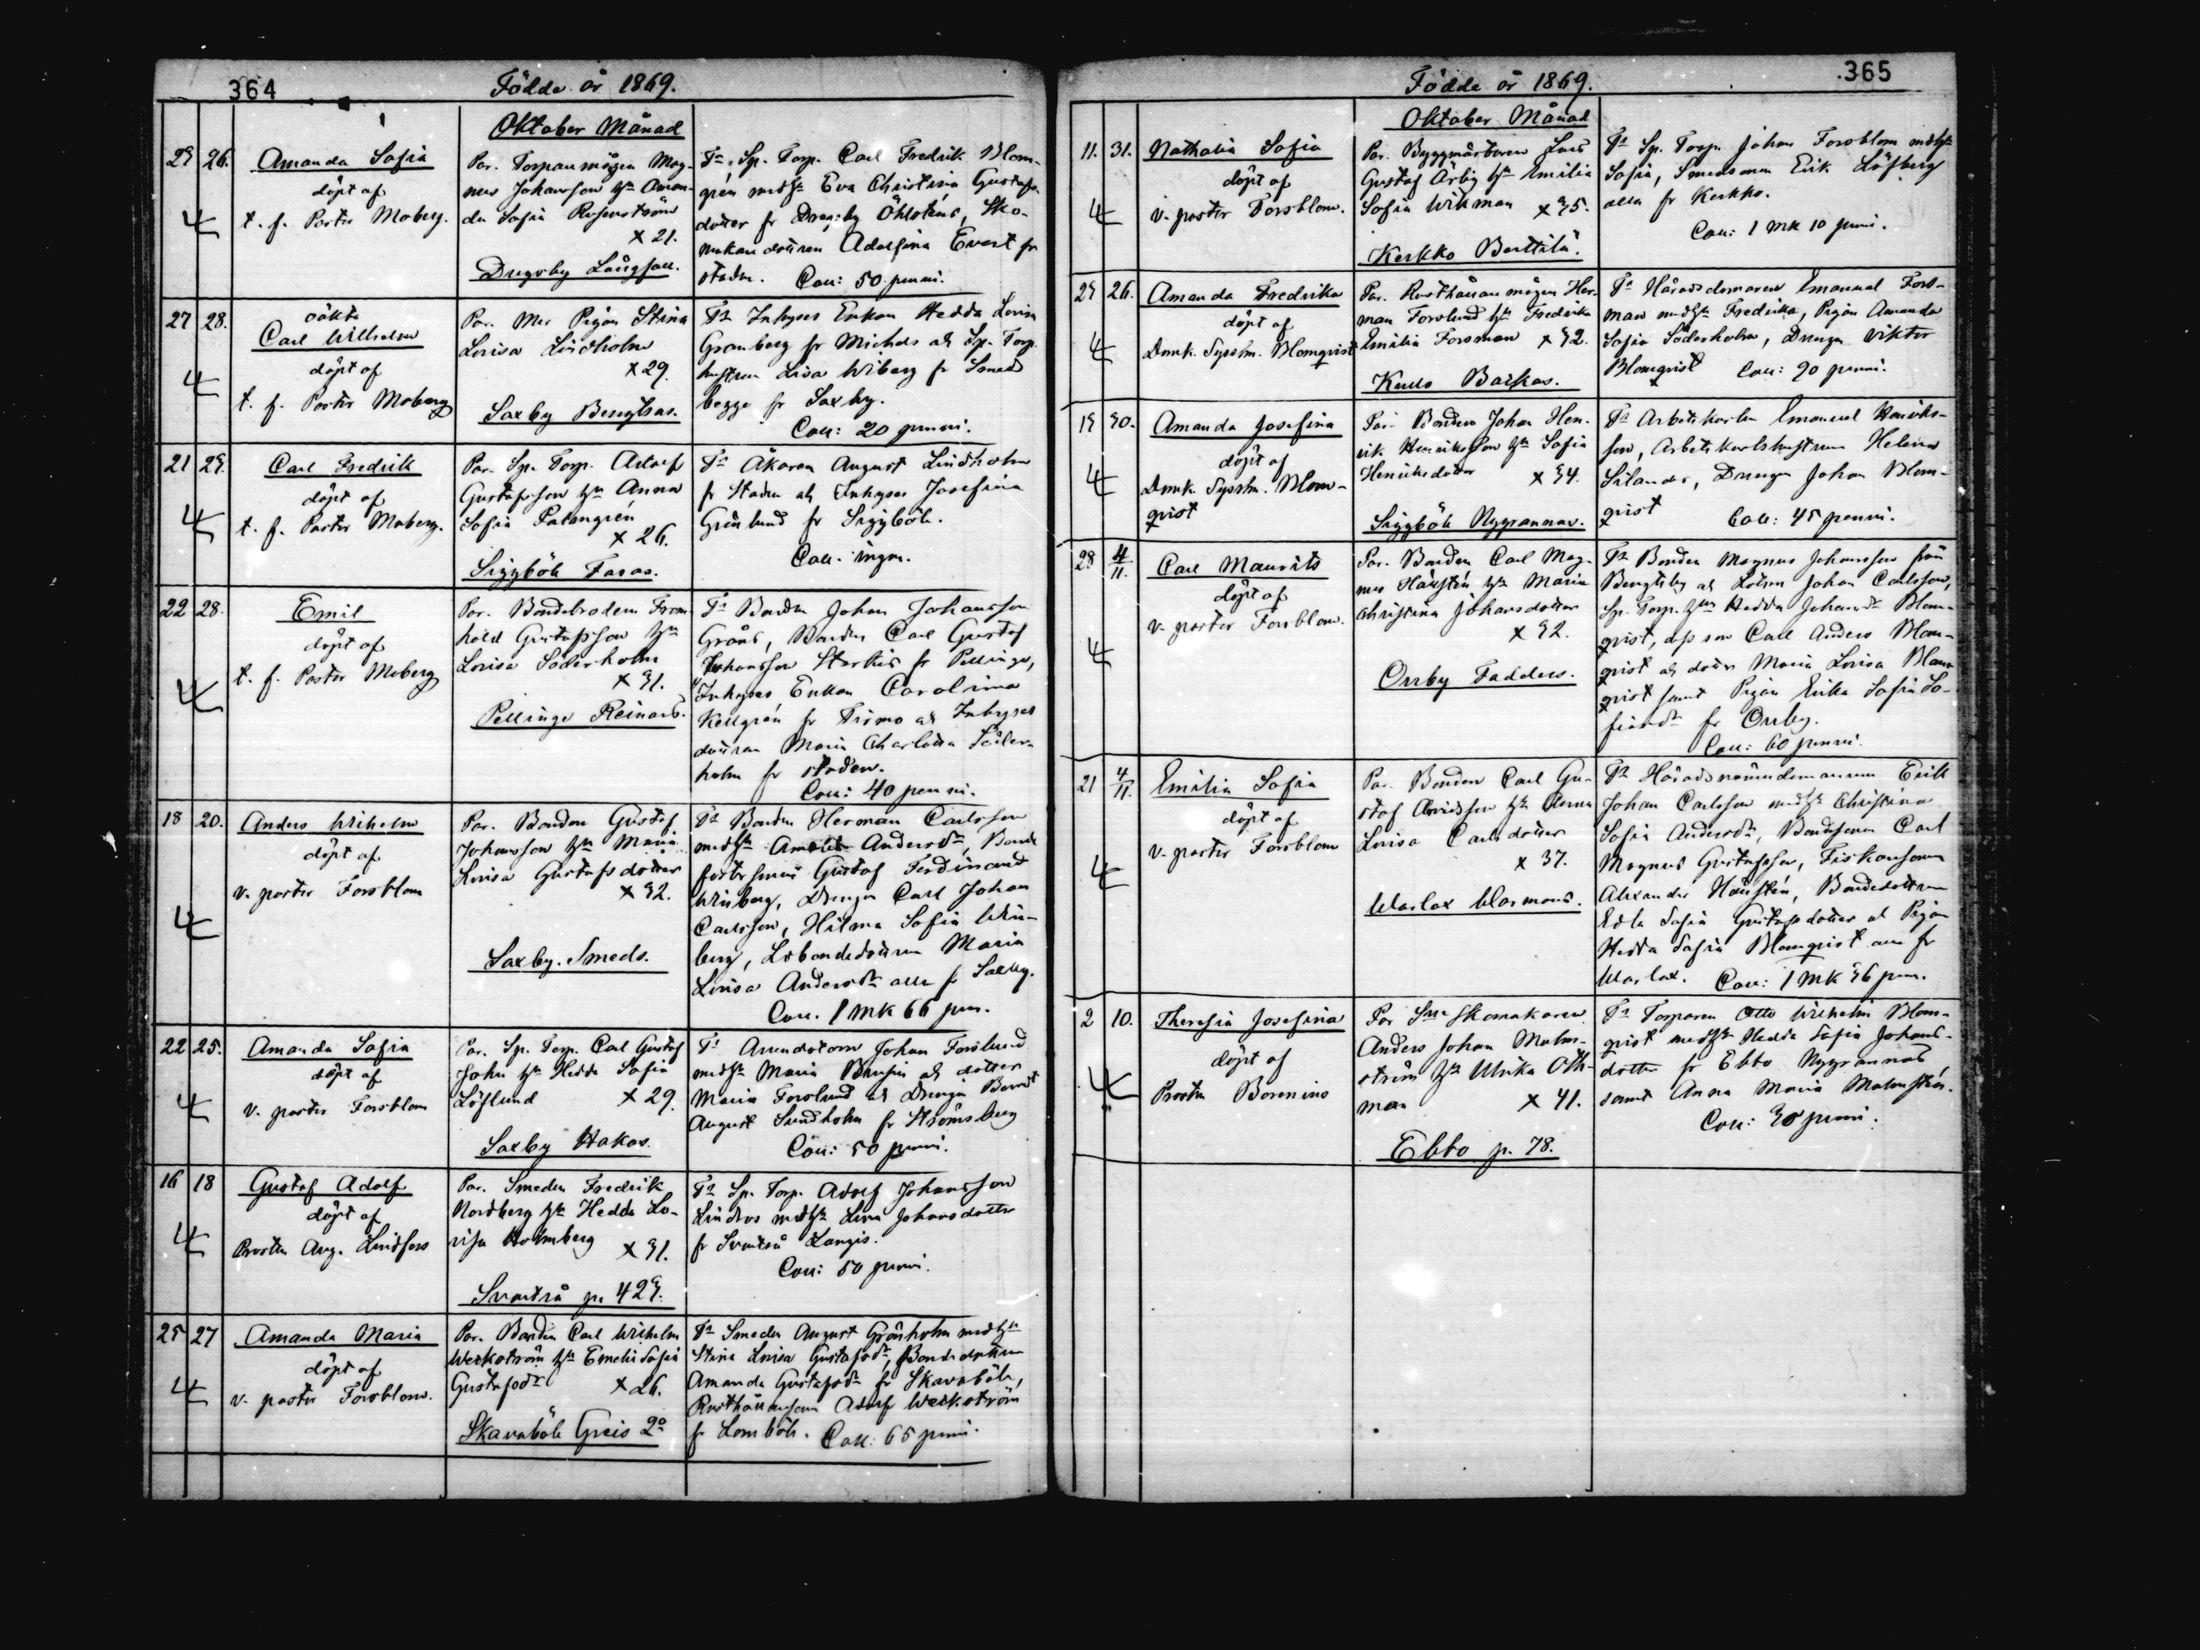 364
Födde år 1869.
Oktober Månad
23 26. Amanda Sofia
döpt af
t. f. Pastor Moberg.
Par. Torparemågen Mag-
nus Johansson hu Aman-
da Sofia Rosenström
x 21.
Drägsby Långfall.
Fr Sp. Torp. Carl Fredrik Blom-
grén med hu Eva Christina Gustafs-
dotter fr Drägsby Öhlstens, Sko-
makaredottren Adolfina Evert fr
staden. Coll: 50 penni.
27 28. oäkta
Carl Wilhelm
döpt af
t. f. Pastor Moberg
Par. Mor Pigan Stina
Lovisa Lindholm
x 29.
Saxby Bengtsas.
Fr Inhyses Enkan Hedda Lovisa
Granberg fr Michels och Sp. Torp.
hustrun Lisa Wiberg fr Smeds
begge fr Saxby.
Coll: 20 penni.
21 23. Carl Fredrik
döpt af
t. f. Pastor Moberg.
Par. Sp. Torp. Adolf
Gustafsson hu Anna
Sofia Palmgrén
x 26.
Siggböle Faras.
Fr Åkaren August Lindholm
fr Staden och Inhyses Josefina
Grönlund fr Siggböle.
Coll. ingen.
22 28. Emil
döpt af
t. f. Pastor Moberg
Par. Bondebrodern From-
hold Gustafsson hu
Lovisa Söderholm
x 31.
Pellinge Reinars.
Fr Bonden Johan Johansson
Gråns, Bonden Carl Gustaf
Johansson Starkis fr Pellinge,
Inhyses Enkan Carolina
Kellgrén fr Tirmo och Inhyses
dottren Maria Charlotta Söder-
holm fr staden.
Coll: 40 penni.
18 20. Anders Wilhelm
döpt af
v. pastor Forsblom
Par. Bonden Gustaf
Johansson hu Maria
Lovisa Gustafsdotter
x 32.
Saxby. Smeds.
Fr Bonden Herman Carlsson
med hu Amalia Andersdr, Bonde
fostersonen Gustaf Ferdinand
Winberg, Drengen Carl Johan
Carlsson, Hilma Sofia Win-
berg, Lbondedottren Maria
Lovisa Andersdr alla fr Saxby.
Coll. 1 mk 66 pen.
22 25. Amanda Sofia
döpt af
v. pastor Forsblom
Par. Sp. Torp. Carl Gustaf
John hu Hedda Sofia
Löflund x 29.
Saxby Hakas.
Fr Arrendatorn Johan Forslund
med hu Maria och dotter
Maria Forslund och Drengen Berndt
August Sundholm fr Strömsberg
Coll: 50 penni.
16 18 Gustaf Adolf
döpt af
Prosten Aug. Lindfors
Par. Smeden Fredrik
Nordberg hu Hedda Lo-
visa Holmberg x 31.
Svartså p. 423.
Fr Sp. Torp. Adolf Johansson
Lindros med hu Lena Johansdotter
fr Svartså Langis.
Coll: 50 penni.
25 27 Amanda Maria
döpt af
v. pastor Forsblom.
Par. Bonden Carl Wilhelm
Weckström hu Emelie Sofia
Gustafsdr x 26.
Skavaböle Greis 2o
Fr Smeden August Grönholm med hu
Stina Lovisa Gustafsdr, Bondedottren
Amanda Gustafsdr fr Skavaböle,
Rusthållarsonen Adolf Weckström
fr Lomböle. Coll: 65 penni.
365
Födde år 1869.
Oktober Månad
11. 31. Nathalia Sofia
döpt af
v. pastor Forsblom.
Par. Byggmästaren Lars
Gustaf Ärbig hu Emilia
Sofia Wikman x 35.
Kerkko Berttilä.
Fr Sp. Torp. Johan Forsblom med hu
Sofia, Smedsonen Erik Löfberg
alla fr Kerkko.
Coll: 1 mk 10 penni.
23 26. Amanda Fredrika
döpt af
Domk. Sysslm. Blomqvist
Par. Rusthållaremågen Her-
man Forslund hu Fredrika
Emilia Forsman x 32.
Kullo Backas.
Fr Häradsdomaren Emanuel Fors-
man med hu Fredrika, Pigan Amanda
Sofia Söderholm, Drengen Viktor
Blomqvist Coll: 90 penni.
19 30. Amanda Josefina
döpt af
Domk. Sysslm. Blom-
qvist
Par. Bonden Johan Hen-
rik Henriksson hu Sofia
Henriksdotter x 34.
Siggböle Nygrannas.
Fr Arbetskarlen Emanuel Henriks-
son, Arbetskarlshustrun Helena
Silander, Drengen Johan Blom-
qvist Coll: 45 penni.
28 4/11. Carl Maurits
döpt af
v. pastor Forsblom.
Par. Bonden Carl Mag-
nus Hällstén hu Maria
Christina Johansdotter
x 32.
Orrby Fadders.
Fr Bonden Magnus Johansson från
Bengtsby och Lotsen Johan Carlsson,
Sp. Torp. hu Hedda Johansdr Blom-
qvist, dess son Carl Anders Blom-
qvist och dotter Maria Lovisa Blom-
qvist samt Pigan Erika Sofia So-
fiasdr fr Orrby.
Coll: 60 penni.
21 4/11. Emilia Sofia
döpt af
v. pastor Forsblom
Par. Bonden Carl Gu-
staf Arvidsson hu Anna
Lovisa Carlsdotter
x 37.
Warlax Warmans.
Fr Häradsnämndemannen Erik
Johan Carlsson med hu Christina
Sofia Andersdr, Bondesonen Carl
Magnus Gustafsson, Fiskarsonen
Alexander Hällstén, Bondedottren
Edla Sofia Gustafsdotter och Pigan
Hedda Sofia Blomqvist alla fr
Warlax. Coll: 1 mk 36 pen.
2 10. Theresia Josefina
döpt af
Prosten Borenius
Par Skomakaren
Anders Johan Malm-
ström hu Ulrika Öth-
man x 41.
Ebbo p. 78.
Fr Torparen Otto Wilhelm Blom-
qvist med hu Hedda Sofia Johans-
dotter fr Ebbo Nygrannas
samt Anna Maria Malmström.
Coll: 30 penni.